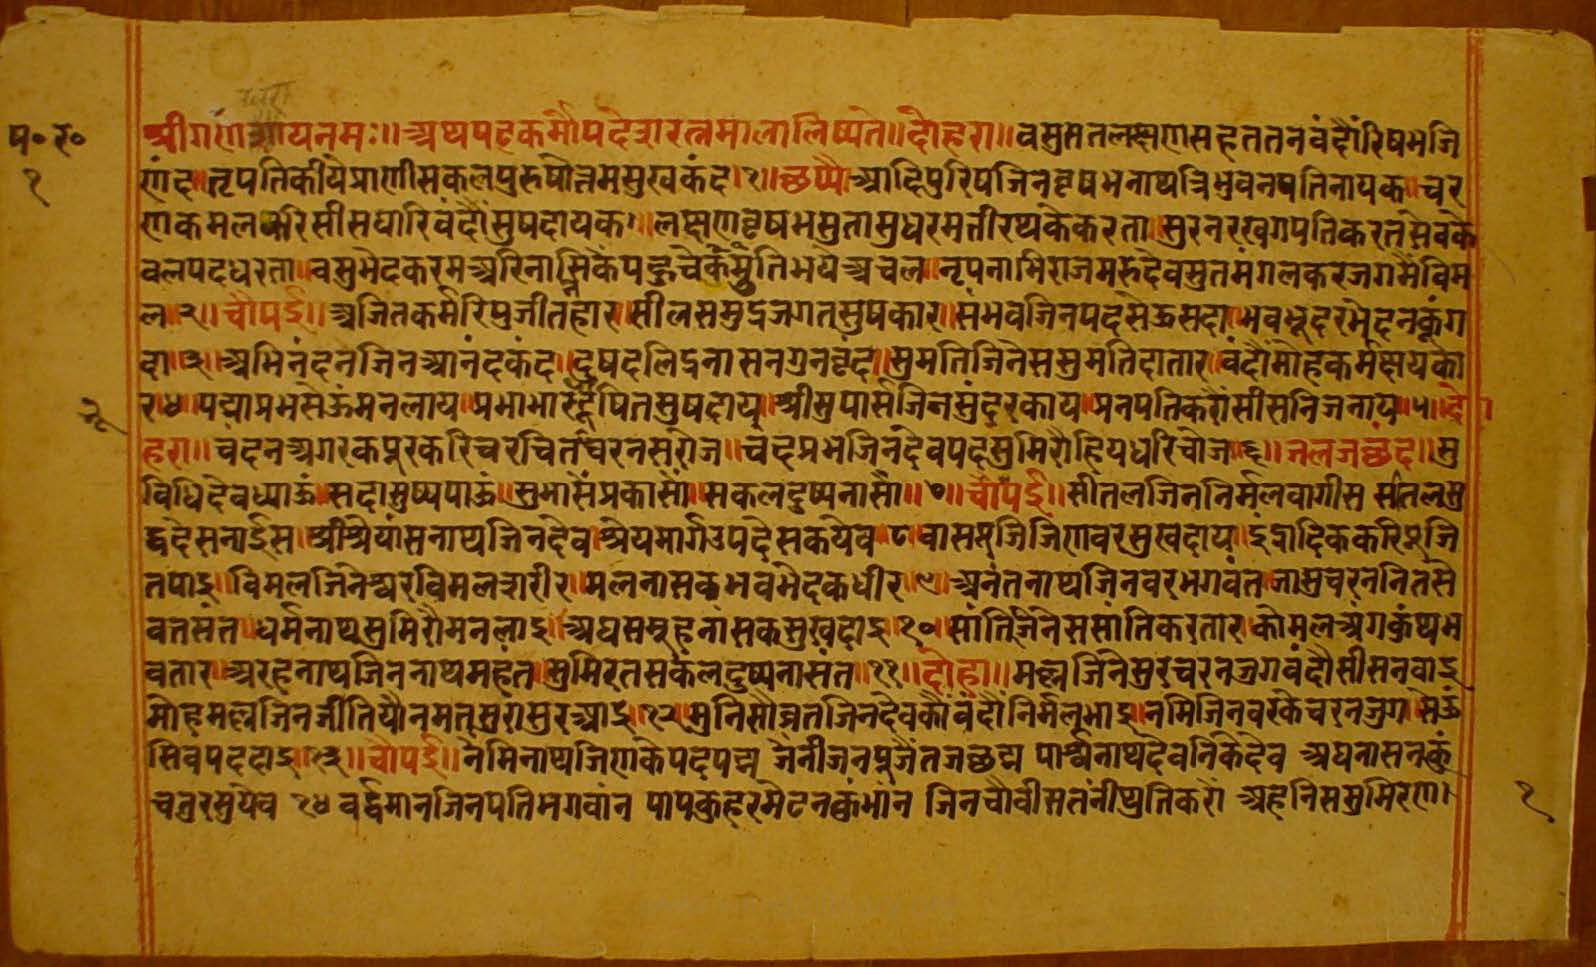 प॰ र॰
१
श्रीगणेशायनमः॥अथ्यषट्कर्मोपदेशरत्नमालालिष्यते॥दोहरा॥वसुसतलक्षणसहततनवंदौंरिषभजि
णंद॥तृपतिकीयेप्राणीसकलपुरुषोत्तमसुखकंद॥१॥छप्पै॥आदिपुरिषजिनवृषभनाथ्यत्रिभुवनपतिनायक॥चर
णकमलधरिसीसघारिवंदौंसुषदायक॥लक्षणवृषभसुतासुधरमतीरथ्यकेकरता॥सुरनरखगपतिकरतसेवके
वलपदधरता॥वसुभेदकरमअरिनासिकेपहुचेमुंकुतिभयेअचल॥नृपनाभिराजमरुदेवसुतमंगलकरजगमेंविम
ल॥२॥चौपई॥अजितकर्मरिपुजीतहार॥सीलसमुद्रजगतसुषकार॥संभवजिनपदसेऊसदा॥भवभूदरभेदनकूंग
दा॥३॥अभिनंदनजिनआनंदकंद॥दुषदलिद्रनासनगुनवृंद॥सुमतिजिनेससुमतिदातार॥वंदौंमोहकर्मक्षयका
र॥४॥पद्माप्रभसेऊंमनलाय॥प्रभाभा पितसुषदाय॥श्रीसुपार्सजिनसुंदरकाय॥प्रनपतिकरौंसीसनिजनाय॥५॥दो
हरा॥चंदनअगरकपूरकरिचरचितचरनसरोज॥चंदप्रभजिनदेवपदसुमिरौहियधरिचोज॥६॥जलजछंद॥सु
विधिदेवध्याऊं॥सदासुष्यपाऊं॥सुभासंप्रकासौं॥सकलदुष्यनासौं॥७॥चौपई॥सीतलजिननिर्मलवागीस सीतलसु
द्धदेसन्याईस॥श्रीश्रेयांसनाथ्यजिनदेव॥श्रेयमार्गउपदेसकयेव॥८॥वासपूजिजिणवरसुखदाय॥इंद्रादिककरिपूजि
तपाइ॥विमलजिनेश्वरविमलशरीर॥मलनासकभवभेदकधीर॥९॥अनंतनाथ्यजिनवरभगवंत॥जासुचरननितसे
वतसंत॥धर्मनाथ्यसुमिरौमनलाइ॥अघसमूहनासकसुखदाइ॥१०॥सांतिजिनेससांतिकरतार॥कोमलअंगकुंथ्यभ
वतार॥अरहनाथ्यजिननाथ्यमहंत॥सुमिरतसकलदुष्यनासंत॥११॥दोहा॥मल्लजिनेसुरचरनजुगवंदौसीसनवाइ
मोहमल्लजिनजीतियौनमतसुरासुरआइ॥१२॥मुनिसोव्रतजिनदेवकौंवंदौंनिर्मलभाइ॥नमिजिनवरकेचरनजुग॥सेऊं
सिवपददाइ॥१३॥चौपई॥नेमिनाथ्यजिणकेपदपद्म जैनीजनपूजेंतजछद्म पार्श्वनाथदेवनिकेदेव अघनासनकूं
चतुरसुयेव १४ वर्द्धमानजिनपतिभगवांन पापकुहरमेटनकूंभांन जिनचौवीसतंनीथ्रुतिकरौं अहनिससुमिरण
१